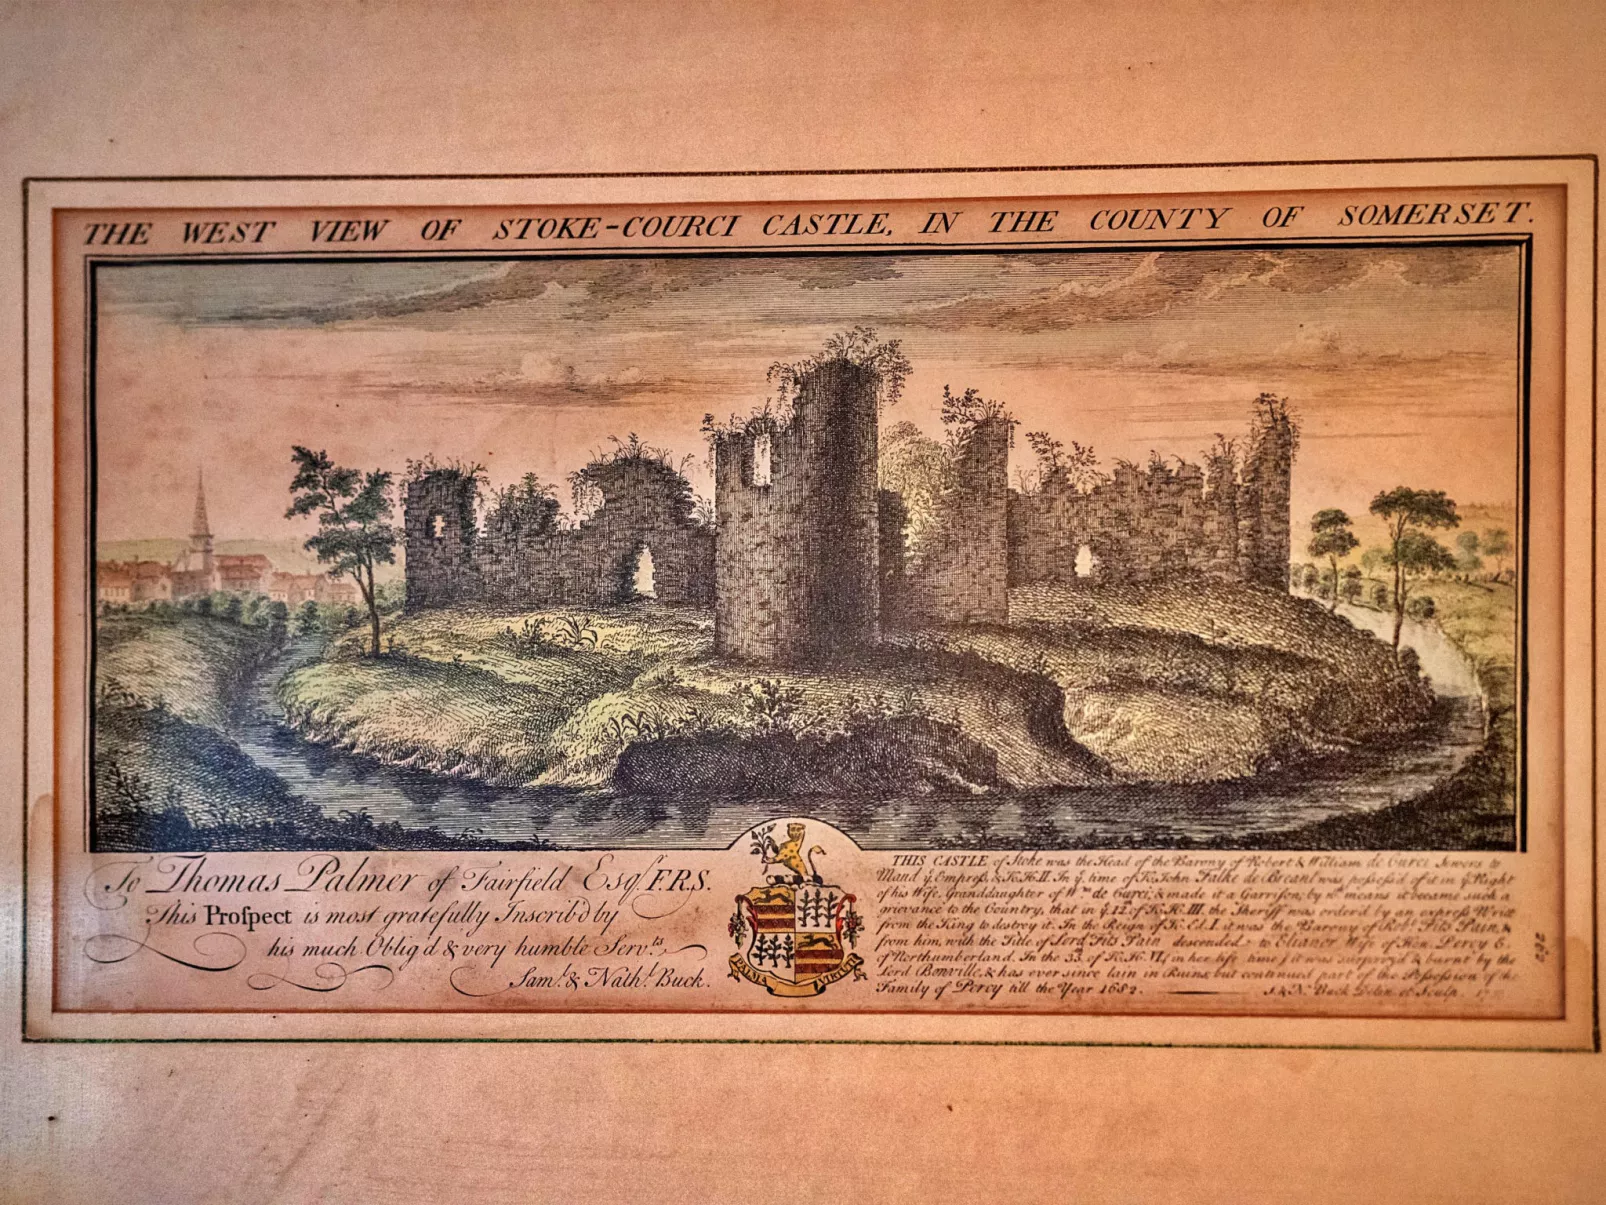 THE WEST VIEW OF STOKE-COURCI CASTLE, IN THE COUNTY OF SOMERSET.
To Thomas Palmer of Fairfield Esqr. F.R.S.
This Proſpect is most gratefully Inscrib'd by
his much Oblig'd & very humble Servts.
Saml. & Nathl. Buck.
PALMA VIRTUTI
THIS CASTLE of Stoke was the Head of the Barony of Robert & William de Curci Sewers to
Maud ye Empreſs, & K. H. II. In ye time of K. John Falke de Breant was poſseſs'd of it in ye Right
of his Wife, Granddaughter of Wm. de Curci; & made it a Garriſon, by wch. means it became such a
grievance to the Country, that in ye 12 of K. H. III. the Sheriff was order'd by an expreſs Writt
from the King to destroy it. In the Reign of K. Ed. I. it was the Barony of Robt. Fits Pain, &
from him, with the Title of Lord Fits Pain descended to Elianor Wife of Hen. Percy E.
of Northumberland. In the 35. of K. H. VI, in her life time it was surpriz'd & burnt by the
Lord Bonville, & has ever since lain in Ruins, but continued part of the Poſseſsion of the
Family of Percy till the Year 1682. S. & N. Buck Delin. et Sculp.